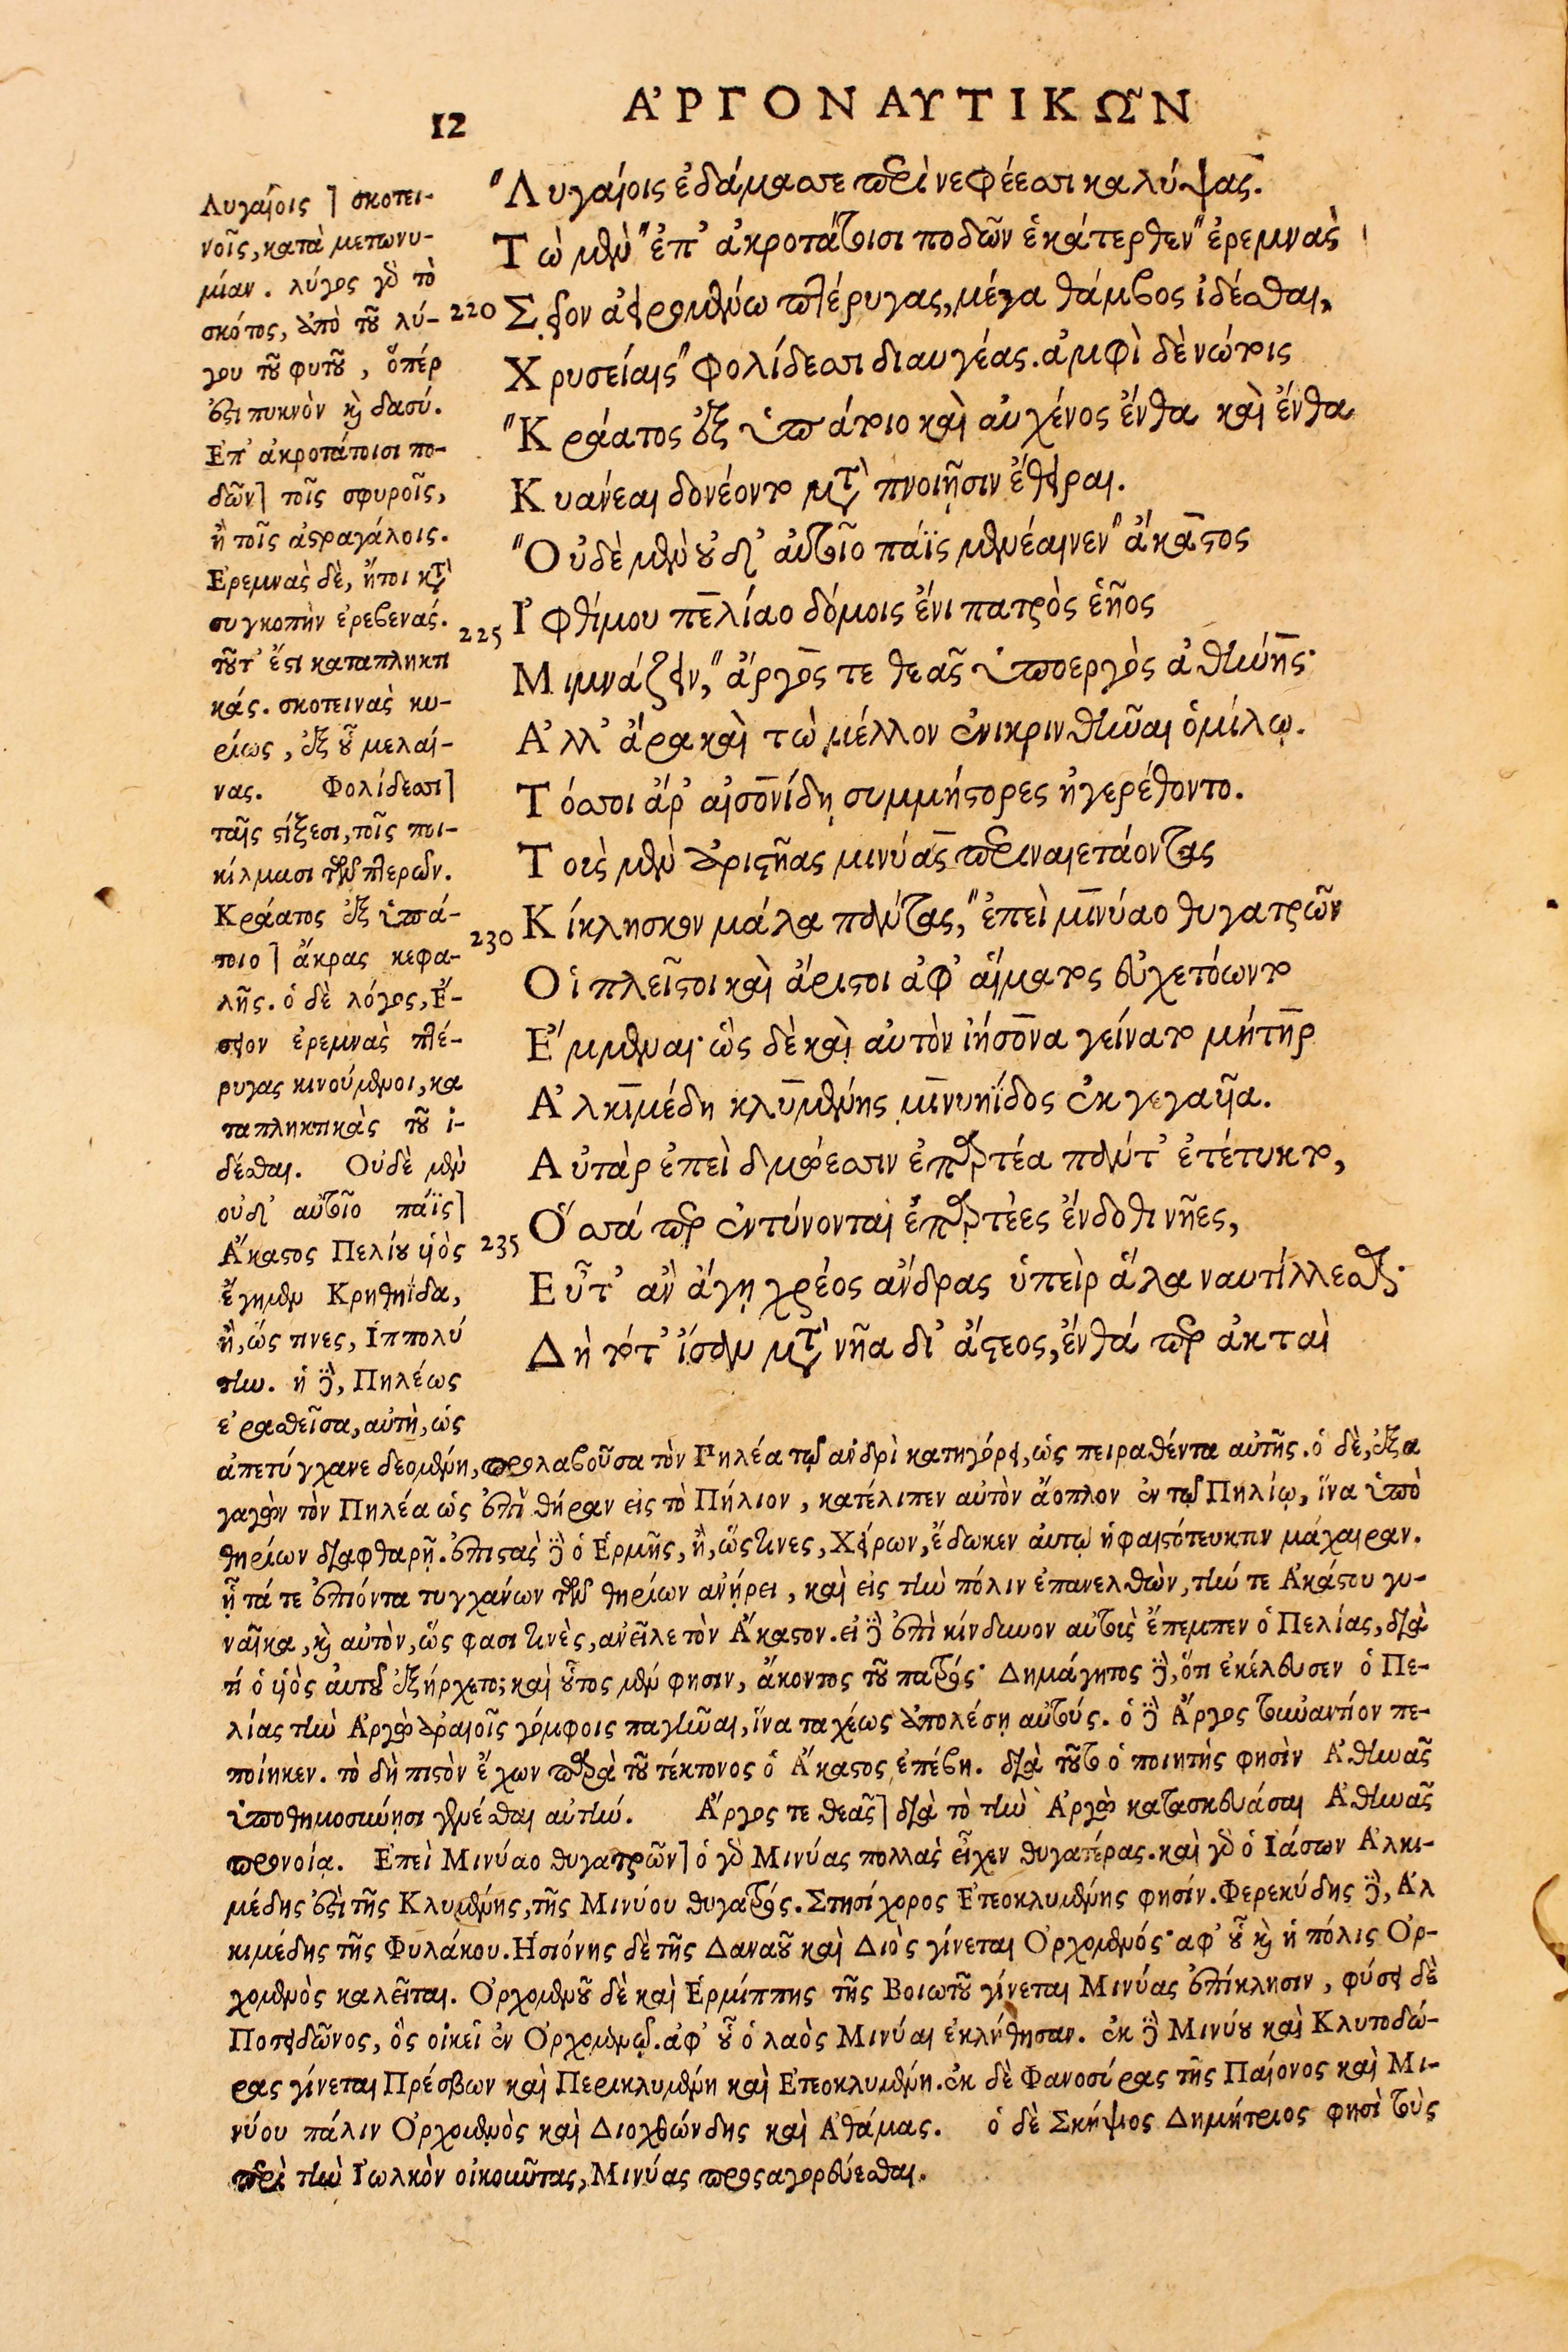 12
ἈΡΓΟΝΑΥΤΙΚΩ͂Ν
"Λυγαίοις ἐδάμασσε περὶ νεφέεσσι καλύψας.
Τὼ μὲν "ἐπ' ἀκροτάτοισι ποδῶν ἑκάτερθεν "ἐρεμνὰς
220 Σεῖον ἀειρομένω πτέρυγας, μέγα θάμβος ἰδέσθαι,
Χρυσείαις "φολίδεσσι διαυγέας. ἀμφὶ δὲ νώτοις
"Κράατος ἐξ ὑπάτοιο καὶ αὐχένος ἔνθα καὶ ἔνθα
Κυάνεαι δονέοντο μετὰ πνοιῇσιν ἔθειραι.
"Οὐδὲ μὲν οὐδ' αὐτοῖο πάϊς μενέαινεν "ἄκαστος
225 Ἰφθίμου πελίαο δόμοις ἔνι πατρὸς ἑῆος
Μιμνάζειν, "ἄργος τε θεᾶς ὑποεργὸς ἀθήνης·
Ἀλλ' ἄρα καὶ τὼ μέλλον ἐνικρινθῆναι ὁμίλῳ.
Τόσσοι ἄρ' αἰσονίδῃ συμμήστορες ἠγερέθοντο.
Τοὺς μὲν ἀριστῆας μινύας περιναιετάοντας
230 Κίκλησκον μάλα πάντας, "ἐπεὶ μινύαο θυγατρῶν
Οἱ πλεῖστοι καὶ ἄριστοι ἀφ' αἵματος εὐχετόωντο
Ἔμμεναι· ὣς δὲ καὶ αὐτὸν ἰήσονα γείνατο μήτηρ
Ἀλκιμέδη κλυμένης μινυηΐδος ἐκγεγαυῖα.
Αὐτὰρ ἐπεὶ δμώεσσιν ἐπαρτέα πάντ' ἐτέτυκτο,
235 Ὅσσά περ ἐντύνονται ἐπαρτέες ἔνδοθι νῆες,
Εὖτ' ἂν ἄγῃ χρέος ἄνδρας ὑπεὶρ ἅλα ναυτίλλεσθαι·
Δὴ τότ' ἴσαν μετὰ νῆα δι' ἄστεος, ἔνθά περ ἀκταὶ
Λυγαίοις] σκοτει-
νοῖς, κατὰ μετωνυ-
μίαν. λύγος γὰρ τὸ
σκότος, ἀπὸ τοῦ λύ-
γου τοῦ φυτοῦ, ὅπέρ
ἐστι πυκνὸν καὶ δασύ.
Ἐπ' ἀκροτάτοισι πο-
δῶν] τοῖς σφυροῖς,
ἢ τοῖς ἀστραγάλοις.
Ἐρεμνὰς δὲ, ἤτοι κατὰ
συγκοπὴν ἐρεβενάς.
τοῦτ' ἔστι καταπληκτι
κάς. σκοτεινὰς κυ-
ρίως, ἐξ οὗ μελαί-
νας. Φολίδεσσι]
ταῖς στίξεσι, τοῖς ποι-
κίλμασι τῶν πτερῶν.
Κράατος ἐξ ὑπά-
τοιο] ἄκρας κεφα-
λῆς. ὁ δὲ λόγος, Ἔ-
σειον ἐρεμνὰς πτέ-
ρυγας κινούμενοι, κα
ταπληκτικὰς τοῦ ἰ-
δέσθαι. Οὐδὲ μὲν
οὐδ' αὐτοῖο πάϊς]
Ἄκαστος Πελίου υἱὸς
ἔγημεν Κρηθηΐδα,
ἢ, ὥς τινες, Ἱππολύ
την. ἡ δὲ, Πηλέως
ἐρασθεῖσα, αὐτὴ, ὡς
ἀπετύγχανε δεομένη, προλαβοῦσα τὸν Πηλέα τῷ ἀνδρὶ κατηγόρει, ὡς πειραθέντα αὐτῆς. ὁ δὲ, ἐξα
γαγὼν τὸν Πηλέα ὡς ἐπὶ θήραν εἰς τὸ Πήλιον, κατέλιπεν αὐτὸν ἄοπλον ἐν τῷ Πηλίῳ, ἵνα ὑπὸ
θηρίων διαφθαρῇ. ἐπιστὰς δὲ ὁ Ἑρμῆς, ἢ, ὥς τινες, Χείρων, ἔδωκεν αὐτῷ ἡφαιστότευκτον μάχαιραν.
ᾗ τά τε ἐπιόντα τυγχάνων τῶν θηρίων ἀνῄρει, καὶ εἰς τὴν πόλιν ἐπανελθὼν, τήν τε Ἀκάστου γυ-
ναῖκα, καὶ αὐτὸν, ὥς φασι τινὲς, ἀνεῖλε τὸν Ἄκαστον. εἰ δὲ ἐπὶ κίνδυνον αὐτοὺς ἔπεμπεν ὁ Πελίας, διὰ
τί ὁ υἱὸς αὐτοῦ ἐξήρχετο; καὶ οὗτος μέν φησιν, ἄκοντος τοῦ πατρός· Δημάγητος δὲ, ὅτι ἐκέλευσεν ὁ Πε-
λίας τὴν Ἀργὼ ἀραιοῖς γόμφοις παγῆναι, ἵνα ταχέως ἀπολέσῃ αὐτούς. ὁ δὲ Ἄργος τοὐναντίον πε-
ποίηκεν. τὸ δὴ πιστὸν ἔχων παρὰ τοῦ τέκτονος ὁ Ἄκαστος ἐπέβη. διὰ τοῦτο ὁ ποιητής φησὶν Ἀθηνᾶς
ὑποθημοσύνῃσι γενέσθαι αὐτήν. Ἄργος τε θεᾶς] διὰ τὸ τὴν Ἀργὼ κατασκευάσαι Ἀθηνᾶς
προνοίᾳ. Ἐπεὶ Μινύαο θυγατρῶν] ὁ γὰρ Μινύας πολλὰς εἶχεν θυγατέρας. καὶ γὰρ ὁ Ἰάσων Ἀλκι-
μέδης ἐστὶ τῆς Κλυμένης, τῆς Μινύου θυγατρός. Στησίχορος Ἐτεοκλυμένης φησίν. Φερεκύδης δὲ, Ἀλ
κιμέδης τῆς Φυλάκου. Ἡσιόνης δὲ τῆς Δαναοῦ καὶ Διὸς γίνεται Ὀρχομενός· ἀφ' οὗ καὶ ἡ πόλις Ὀρ-
χομενὸς καλεῖται. Ὀρχομενοῦ δὲ καὶ Ἑρμίππης τῆς Βοιωτοῦ γίνεται Μινύας ἐπίκλησιν, φύσει δὲ
Ποσειδῶνος, ὃς οἰκεῖ ἐν Ὀρχομενῷ. ἀφ' οὗ ὁ λαὸς Μινύαι ἐκλήθησαν. ἐκ δὲ Μινύου καὶ Κλυτοδώ-
ρας γίνεται Πρέσβων καὶ Περικλυμένη καὶ Ἐτεοκλυμένη. ἐκ δὲ Φανοσύρας τῆς Παίονος καὶ Μι-
νύου πάλιν Ὀρχομενὸς καὶ Διοχθώνδης καὶ Ἀθάμας. ὁ δὲ Σκήψιος Δημήτριος φησὶ τοὺς
περὶ τὴν Ἰωλκὸν οἰκοῦντας, Μινύας προσαγορεύεσθαι.